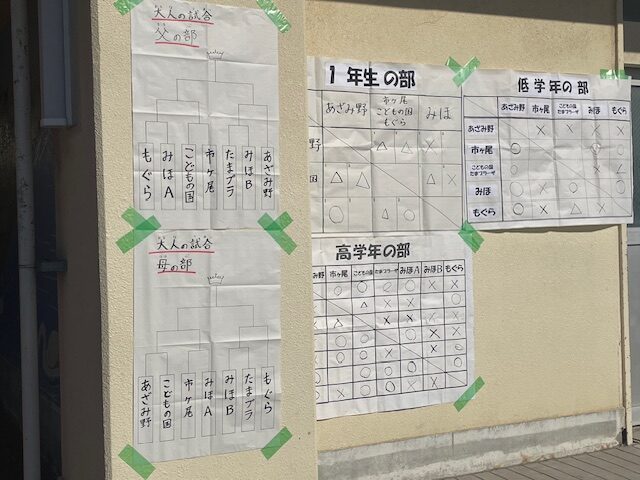 大人の試合
父の部
もぐら
みほA
こどもの国
市ヶ尾
たまプラ
みほB
あざみ野
大人の試合
母の部
あざみ野
こどもの国
市ヶ尾
みほA
みほB
たまプラ
もぐら
1年生の部
あざみ野 市ヶ尾 こどもの国 もぐら みほ
野 △ △ △ ×
国 △ △ △ ×
○ △ ○
低学年の部
あざみ野 市ヶ尾 こどもの国 たまプラーザ みほ もぐら
あざみ野 × × × ×
市ヶ尾 ○
こどもの国 たまプラーザ ○ × △
みほ ○ × ○
もぐら ○ × △ ×
高学年の部
み野 市ヶ尾 こどもの国 たまプラーザ みほA みほB もぐら